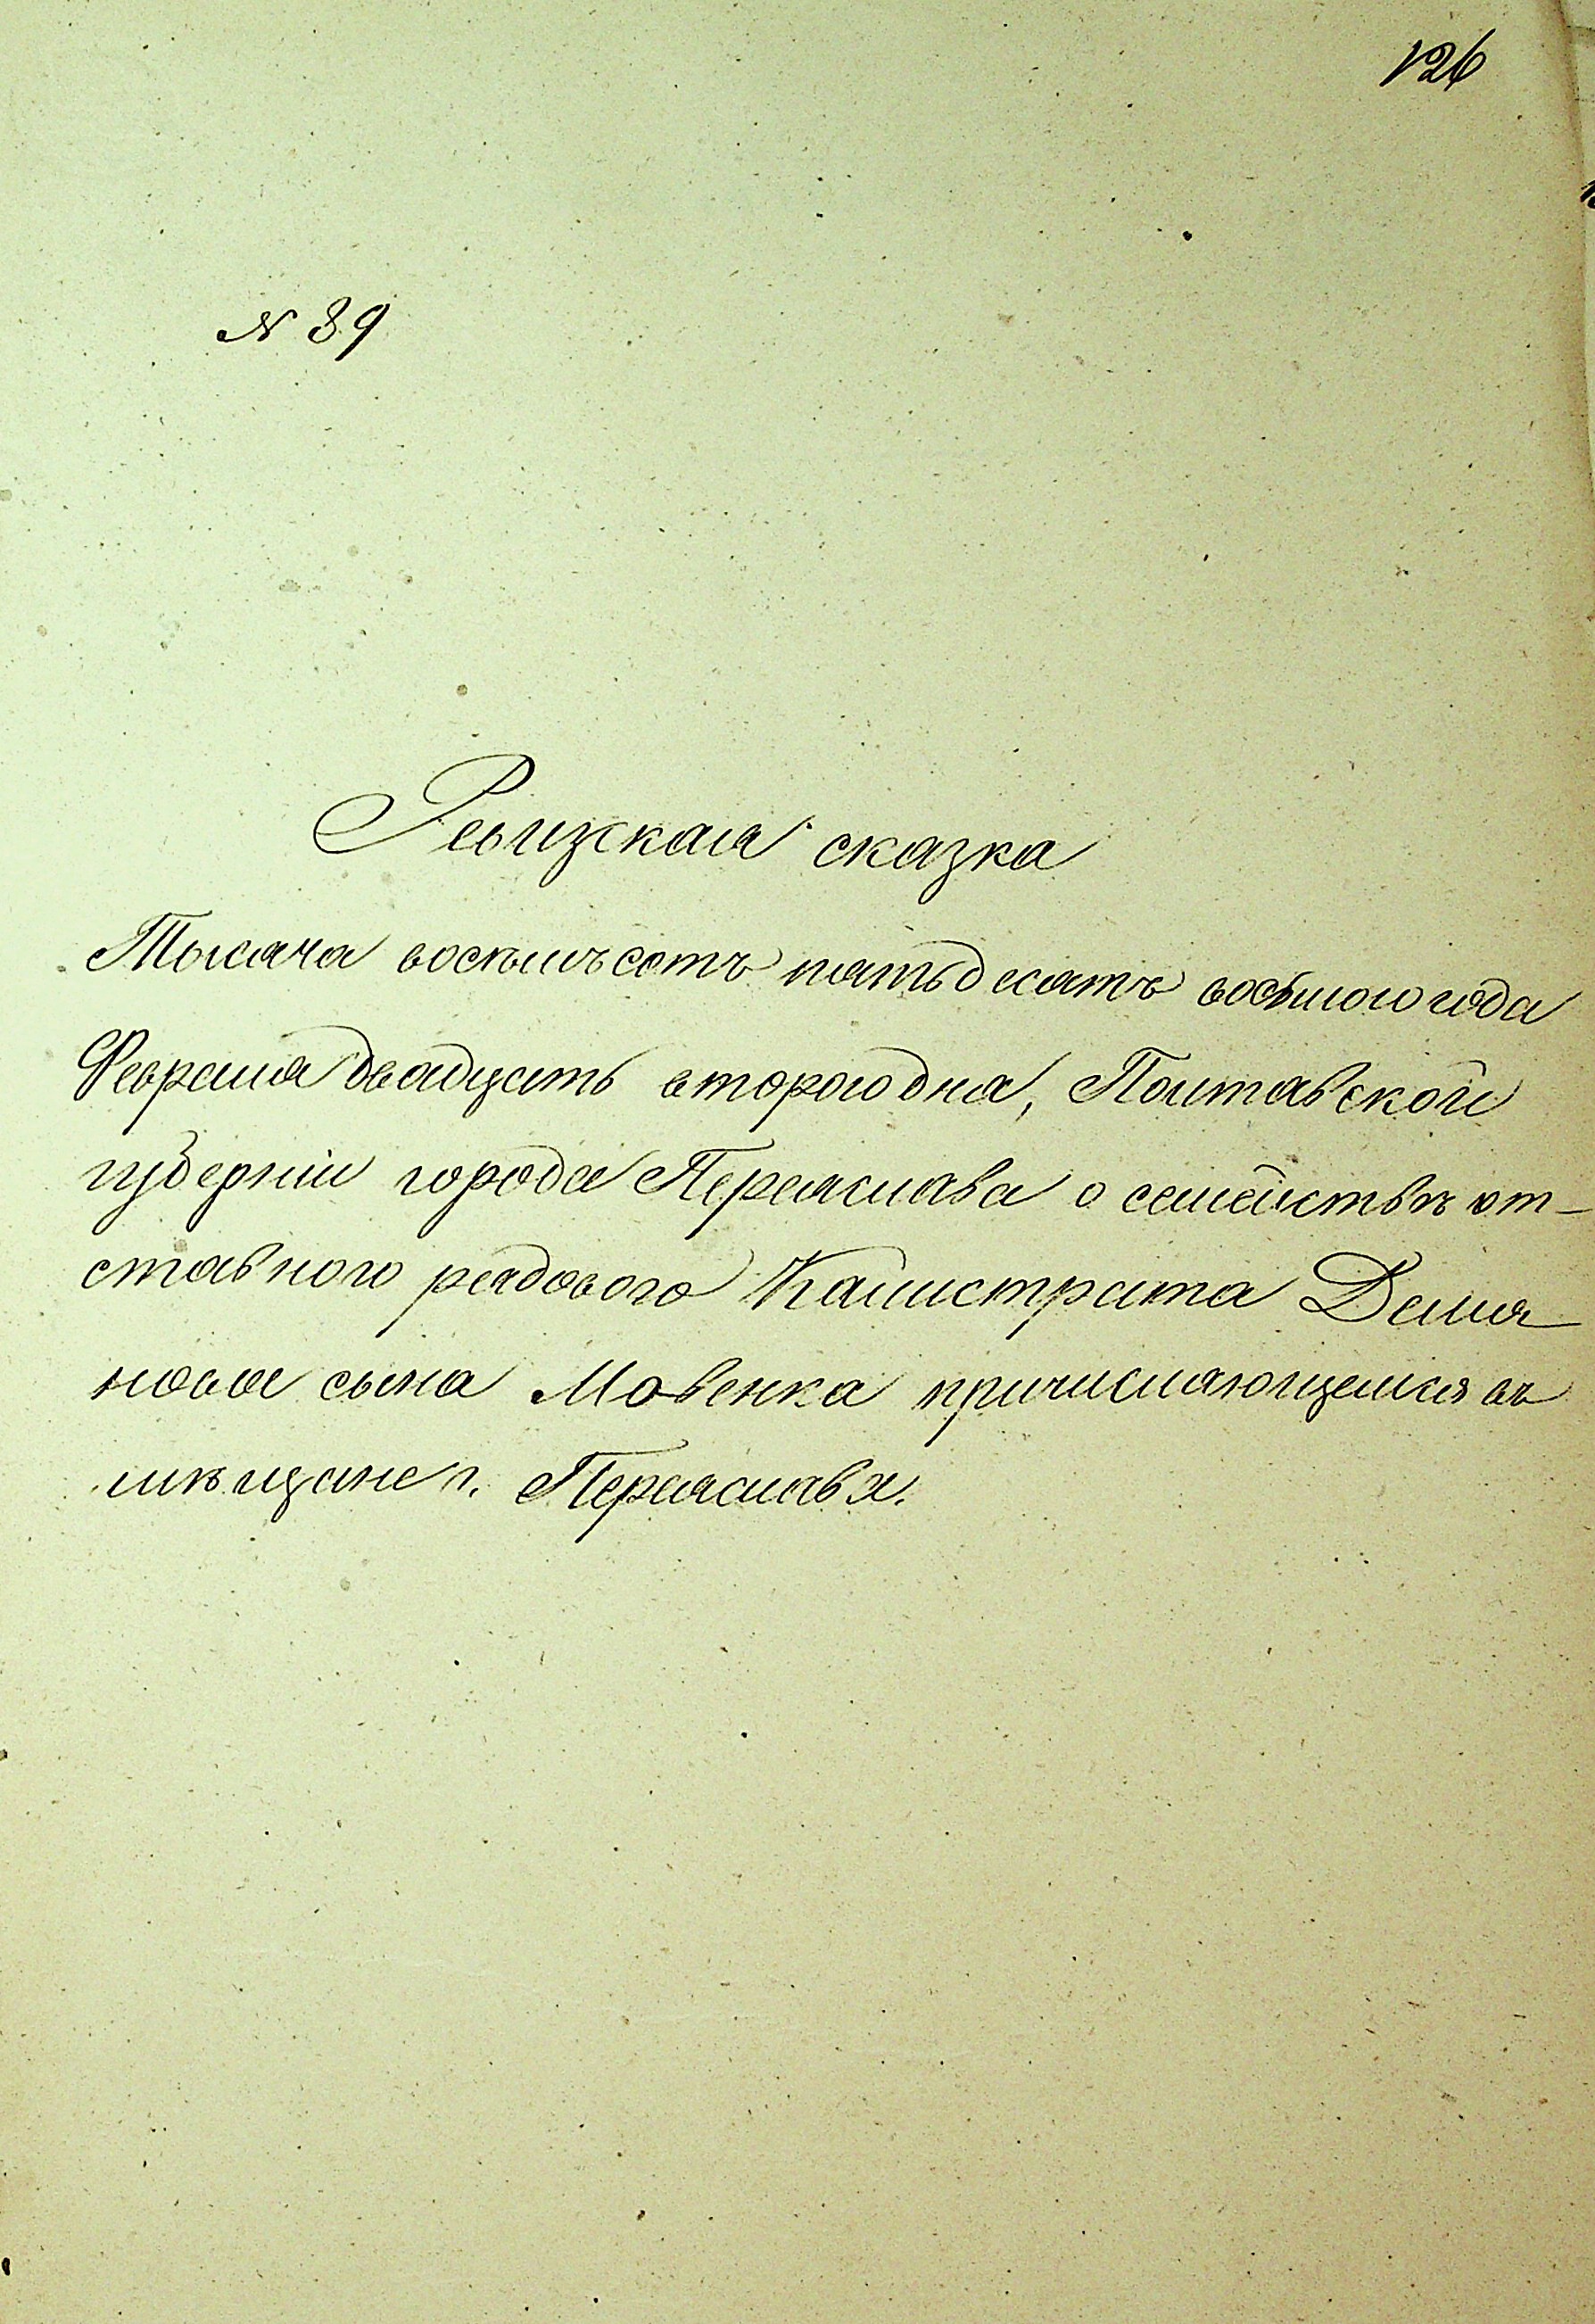 126
№ 39
Ревизская сказка
Тысяча восемьсотъ пятьдесятъ восьмого года
Февраля двадцать второго дня, Полтавской
губерніи города Переяслава о семействѣ от-
ставного рядового Калистрата Демя
нова сына Мовенка причисляющемся въ
мѣщане г. Переяслава.